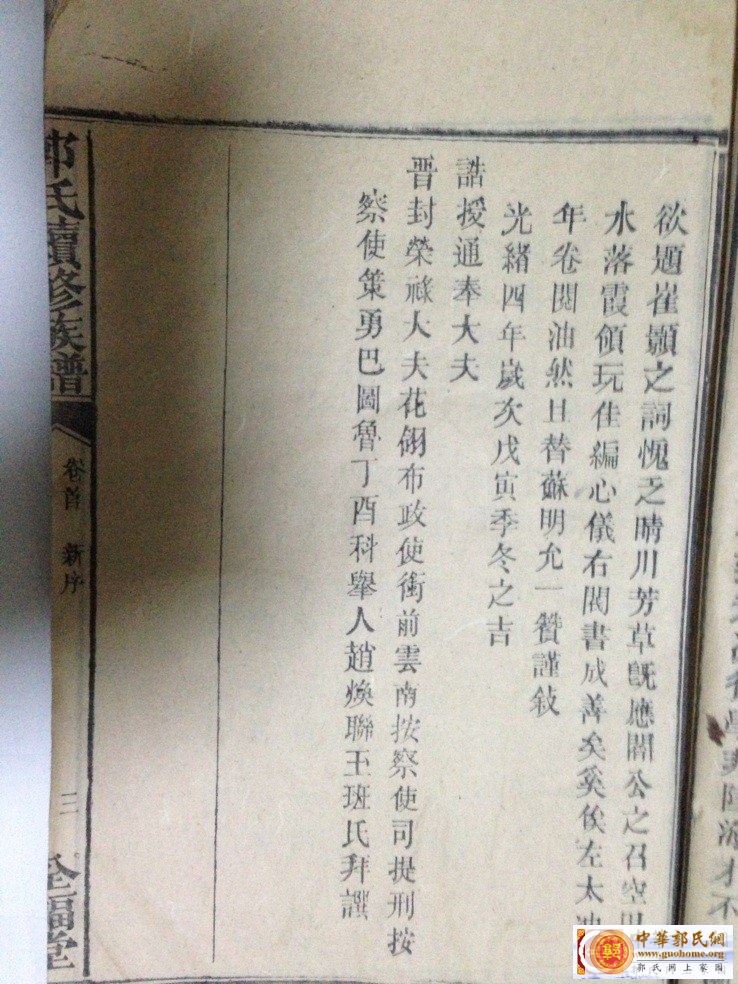 欲題崔顥之詞愧乏晴川芳草旣應閻公之召空
水落霞領玩佳編心儀右閣書成善矣奚俟左太冲
年卷閱油然且替蘇明允一贊謹敍
光緒四年歲次戊寅季冬之吉
誥授通奉大夫
晋封榮祿大夫花翎布政使銜前雲南按察使司提刑按
察使策勇巴圖魯丁酉科舉人趙煥聯玉班氏拜譔
郭氏續修族譜
卷首 新序
三
全福堂
中華郭氏網
www.guohome.org
郭氏網上家園